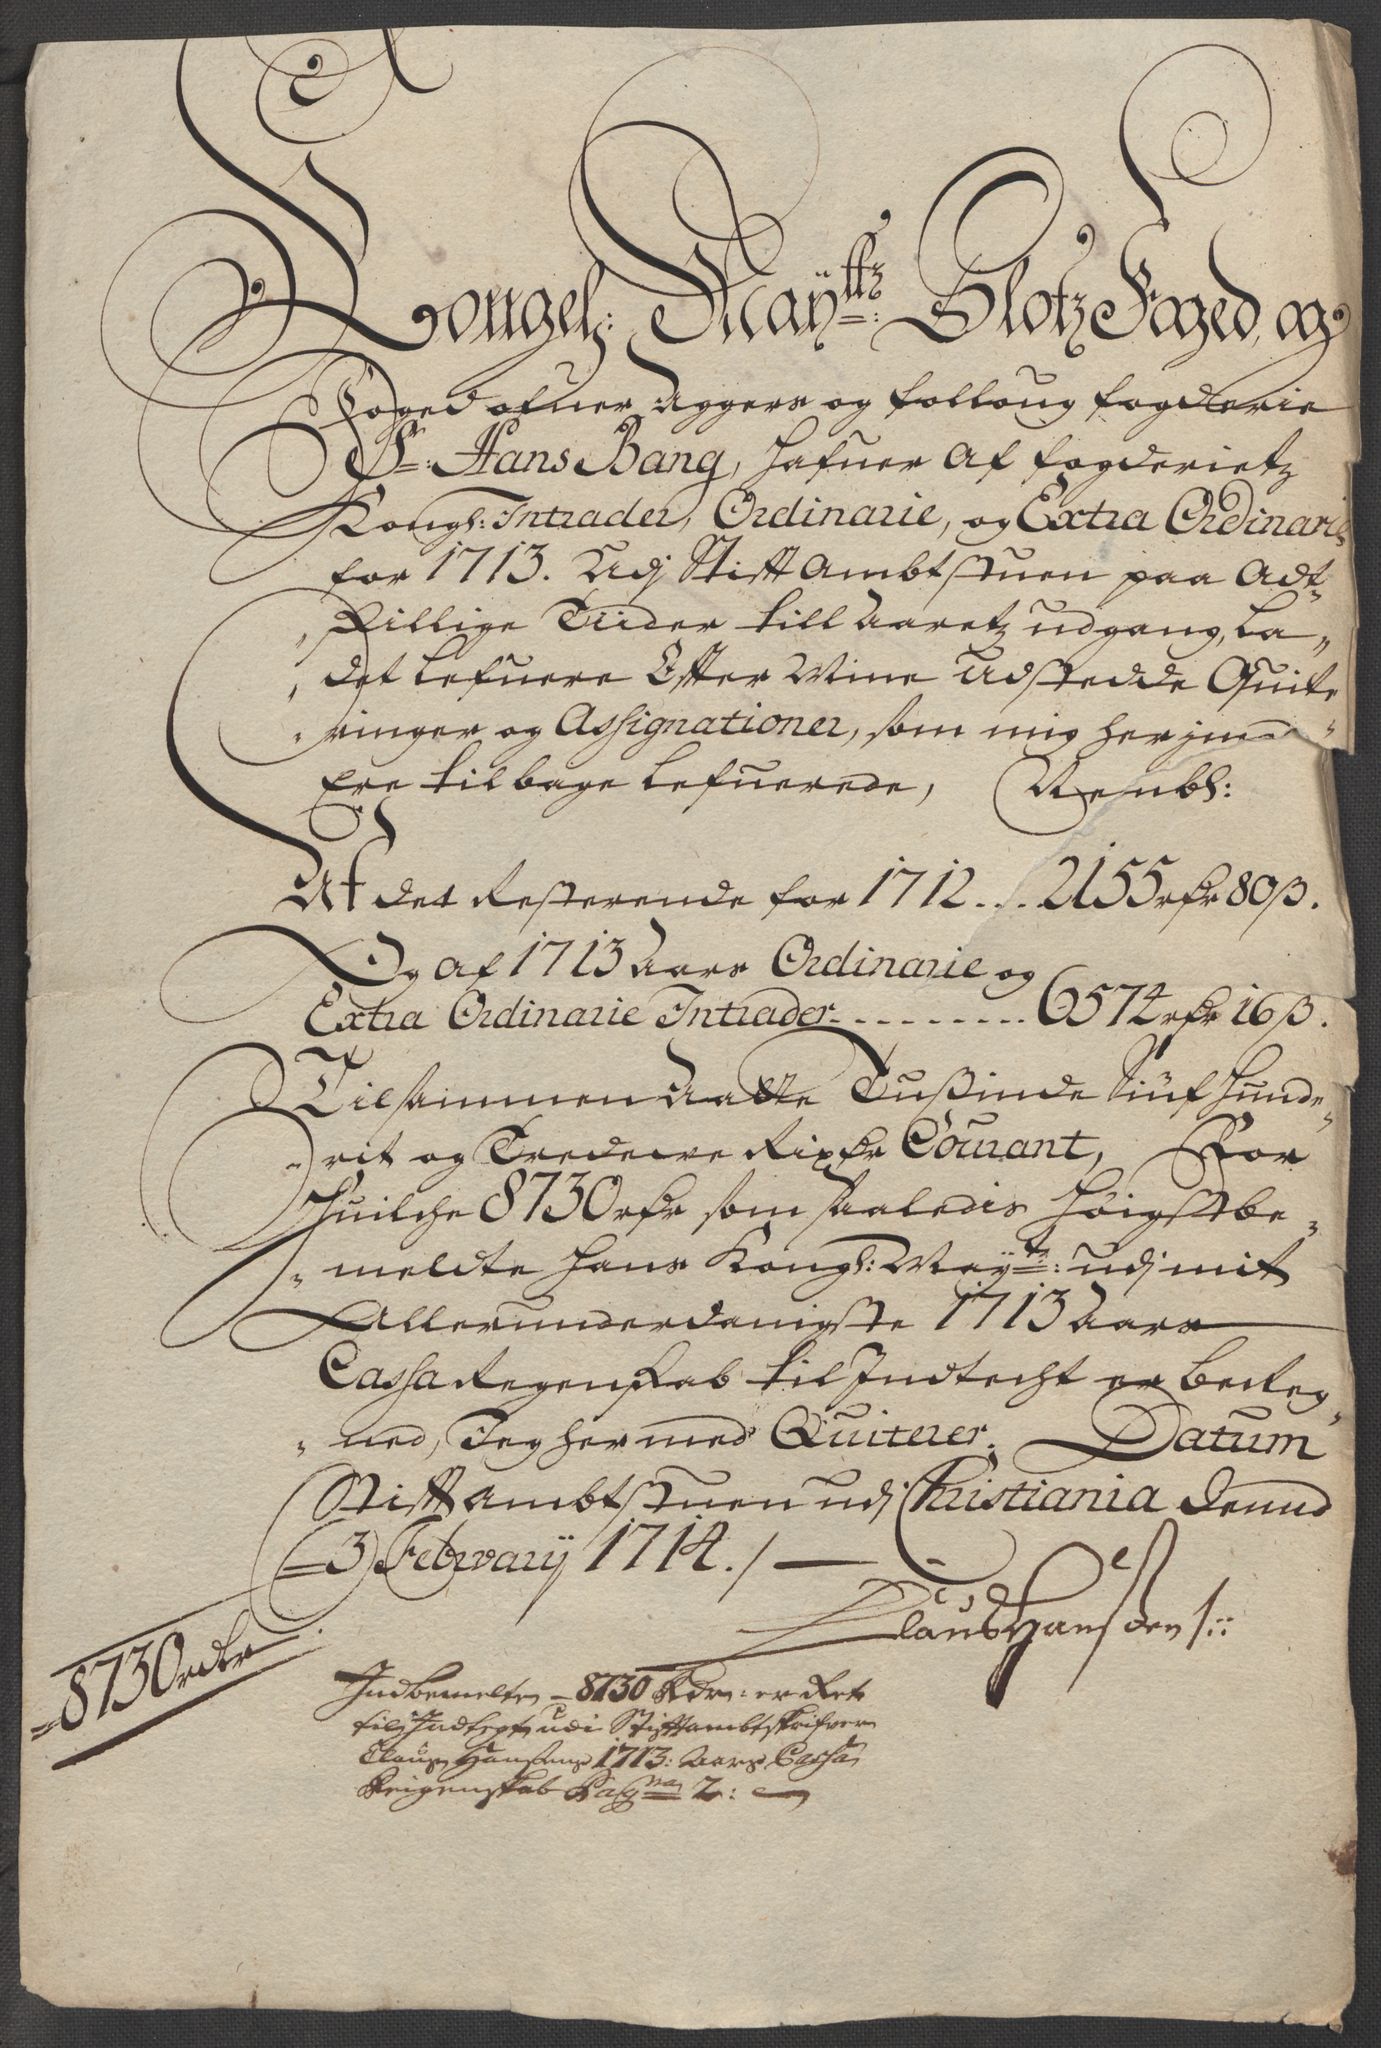 Kongel: Mayttz: Slotz Foged, og
Foged ofuer Aggers og Folloug fogderie
Sr: Hans Bang, hafuer Af fogderietz
Kongl: Intrader, Ordinarie, og Extra Ordinarie
for 1713. Udj Stiftambtstuen paa Adt„
„skillige Tiider till Aaretz udgang, La„
„det Lefuere Efter Mine Udstedde Quite
„ringer og Assignationer, som mig herjmod„
Ere tilbage Lefuerede, Nembl:
Af det Resterende for 1712.... 2155 rdr 80 ß.
Og Af 1713 Aars Ordinarie og
Extra Ordinarie Intrader.......... 6574 rdr 16 ß.
Tilsammen Aatte Tußinde Siuf hunde„
„rit og Tredeive Rixdr Courant, For
Huilche 8730 rdr som saaledis Høigstbe„
„meldte Hans Kongl: Maytt: udj mit
Allerunderdanigste 1713 Aars
Cassa Regenskab til Indtecht er bereg„
„ned, Jeg hermed Quiterer. Datum
Stiftambtstuen udj Christiania dend
=3 February 1714./—
Claus Hansßen
=8730 rdr
Indbemelten =8730 Rdr: er Ret
til Indtegt udi Stiftambtskrifver
Claus Hansens 1713: Aars Cassa
Reigenskab Pagna 2: —